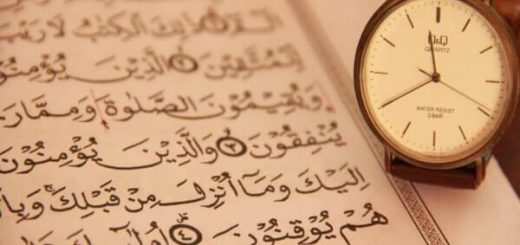 الْكِتَابُ لَا
لِلْمُتَّقِينَ ٢ الَّذِينَ يُؤْمِنُونَ
وَيُقِيمُونَ الصَّلٰوةَ وَمِمَّا
يُنْفِقُونَ ٣ وَالَّذِينَ يُؤْمِنُونَ
اِلَيْكَ وَمَٓا اُنْزِلَ مِنْ قَبْلِكَ
هُمْ يُوقِنُونَ ٤
Q&Q
QUARTZ
WATER RESIST
3 BAR